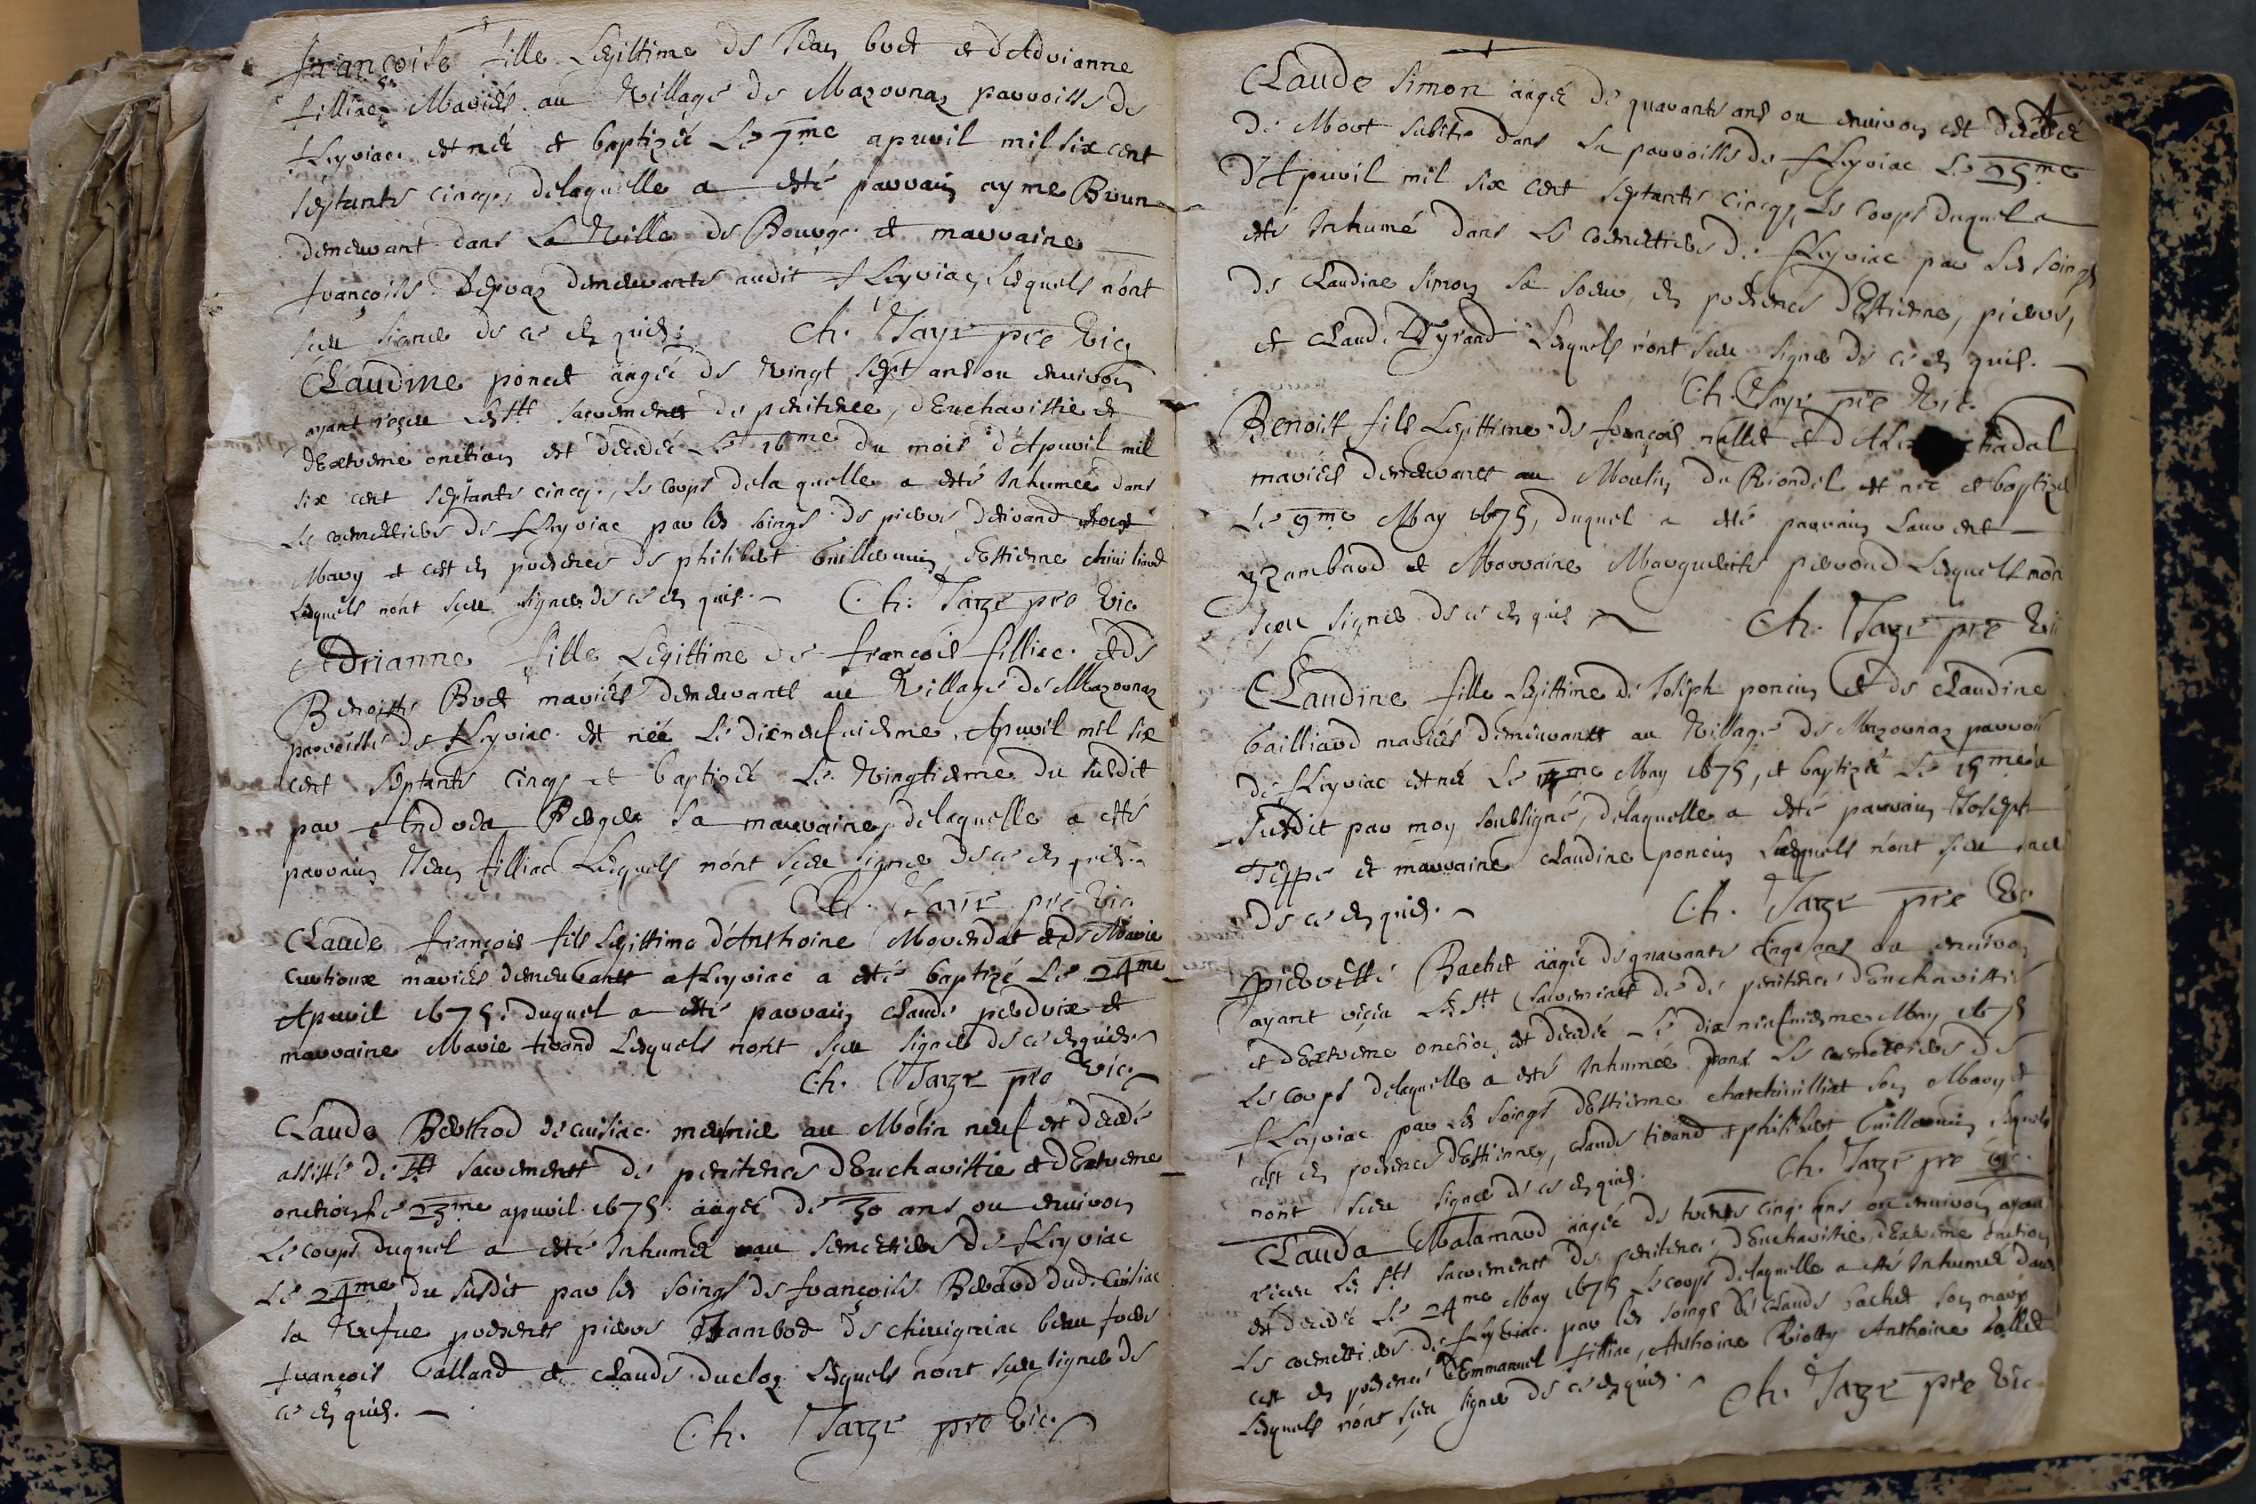 françoise fille Legittime de Jean buet et d'Adrianne
filliac Mariés au Village de Mazornaz parroisse de
fleyriac est née et baptizée Le 7me apuril mil six cent
septante cincq, delaquelle a esté parrain ayme Brun
demeurant dans La Ville de Bourg et marraine
françoise demeurante audit fleyriac, Lesquels n'ont
sceu signer de ce en quis. Ch. pre Vic
Claudine poncet aagée de Vingt sept ans ou enuiron
ayant reçeu Les Sts sacrements de penitence, d'Eucharistie et
d'Extreme onction est decedée Le 16me du mois d'Apuril mil
six cent septante cincq, Le corps dela quelle a esté Inhumée dans
Le cemettiere de fleyriac par les soings de pierre
Mary et cest en presence de philibert Guillermin, d'Estienne
Lesquels n'ont sceu signer de ce en quis. Ch. pre Vic
Adrianne fille Legittime de françois filliac et de
Benoiste Buet mariés demeurants au Village de Mazornaz
parroisse de fleyriac est née Le dixneufuiesme Apuril mil six
cent septante cincq et baptizée Le Vingtiesme du susdit
par sa marraine, delaquelle a esté
parrain Jean filliac Lesquels n'ont sceu signer de ce en quis.
Ch. pre Vic
Claude françois fils Legittime d'Anthoine et de Marie
mariés demeurants a fleyriac a esté baptizé Le 24me
Apuril 1675. duquel a esté parrain Claude perdrix et
marraine Marie tirand Lesquels n'ont sceu signer de ce enquis.
Ch. pre Vic.
Claude Berthod de cuisiac meusnier au Molin neuf est decedé
assisté de Sts sacrements de penitence d'Eucharistie et d'Extreme
onction Le 23me apuril 1675. aagée de 50 ans ou enuiron
Le corps duquel a esté Inhumée au semettiere de fleyriac
Le 24me du susdit par les soings de françoise dud. Cuisiac
sa Vefue presents pierre de beau frere
françois et claude ducloz Lesquels n'ont sceu signer de
ce en quis.
Ch. pre Vic.
Claude Simon aagée de quarante ans ou enuiron est decedée
de Mort subite dans La parroisse de fleyriac Le 25me
d'Apuril mil six cent septante cincq, Le corps duquel a
esté Inhumé dans Le coemettiere de fleyriac par Les soings
de Claudine Simon sa soeur, en presence d'Estienne, pierre,
et Claude Lesquels n'ont sceu signer de ce en quis.
Ch. pre Vic.
Benoist fils Legittime de françois et
mariés demeurants au Moulin du Riondel est née et baptizé
Le 9me May 1675, duquel a esté parrain Laurent
et Marraine Marguerite Lesquels n'on
sceu signer de ce en quis. Ch. pre Vic
Claudine fille Legittime de Joseph poncin et de Claudine
Gailliard mariés demeurants au Village de Mazornaz
de fleyriac est née Le May 1675, et baptizée Le 15me du
susdit par moy soubsigné, delaquelle a esté parrain Joseph
Teppe et marraine Claudine poncin Lesquels n'ont sceu
de ce en quis. Ch. pre Vic
pierrette Bachet aagée de quarante cinq ans ou enuiron
ayant Les Sts Sacrements de de penitence d'Eucharistie
et d'Extreme onction, est decedée Le dixneufuiesme May 1675
Le corps delaquelle a esté Inhumée dans Le coemettiere de
fleyriac par Les soings d'Estienne son Mary et
cest en presence d'Estienne, Claude tirand et philibert Guillermin Lesquels
n'ont sceu signer de ce en quis. Ch. pre Vic.
Clauda Malamard aagée de trente cinq ans ou enuiron ayant
Les Sts sacrements de penitence, d'Eucharistie, d'Extreme onction
est decedée Le 24me May 1675 Le corps delaquelle a esté Inhumée dans
Le coemettiere de fleyriac par les soings de Claude bachet son mary
cest en presence d'Emmanuel filliac, Anthoine Anthoine
Lesquels n'ont sceu signer de ce en quis. Ch. pre Vic